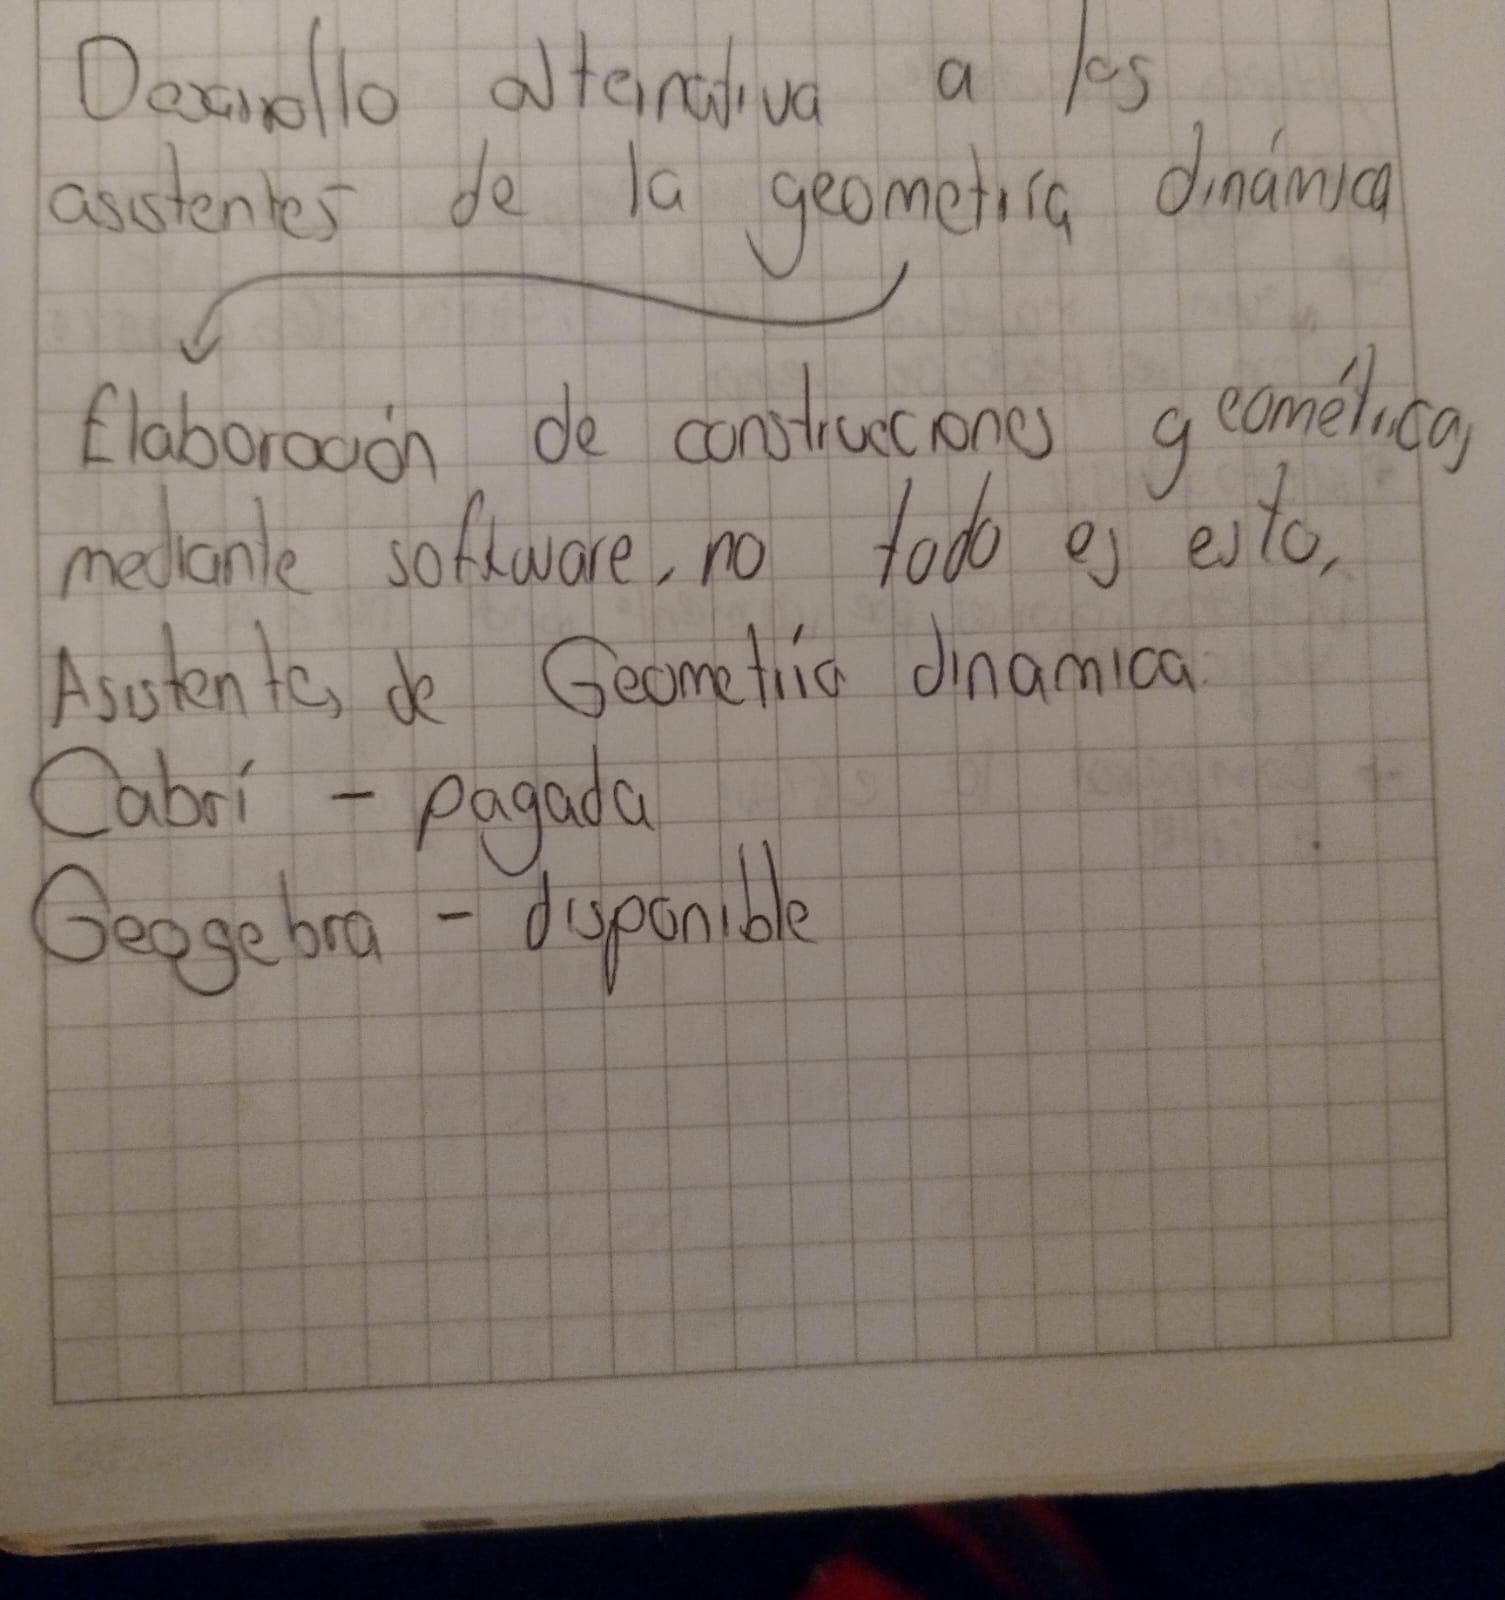 Desarrollo alternativa a los
asistentes de la geometiria dinámica
Elaboración de construcciones geométricas
mediante software, no todo es esto,
Asistentes de Geometria dinamica.
Cabrí - pagada
Geogebra - disponible